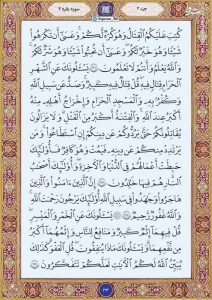 جزء ۲
سوره بقره ۲
كُتِبَ عَلَيْكُمُ ٱلْقِتَالُ وَهُوَ كُرْهٌ لَّكُمْ وَعَسَىٰٓ أَن تَكْرَهُوا۟
شَيْـًٔا وَهُوَ خَيْرٌ لَّكُمْ وَعَسَىٰٓ أَن تُحِبُّوا۟ شَيْـًٔا وَهُوَ شَرٌّ لَّكُمْ
وَٱللَّهُ يَعْلَمُ وَأَنتُمْ لَا تَعْلَمُونَ ﴿٢١٦﴾ يَسْـَٔلُونَكَ عَنِ ٱلشَّهْرِ
ٱلْحَرَامِ قِتَالٍ فِيهِ قُلْ قِتَالٌ فِيهِ كَبِيرٌ وَصَدٌّ عَن سَبِيلِ ٱللَّهِ
وَكُفْرٌۢ بِهِۦ وَٱلْمَسْجِدِ ٱلْحَرَامِ وَإِخْرَاجُ أَهْلِهِۦ مِنْهُ
أَكْبَرُ عِندَ ٱللَّهِ وَٱلْفِتْنَةُ أَكْبَرُ مِنَ ٱلْقَتْلِ وَلَا يَزَالُونَ
يُقَٰتِلُونَكُمْ حَتَّىٰ يَرُدُّوكُمْ عَن دِينِكُمْ إِنِ ٱسْتَطَٰعُوا۟ وَمَن
يَرْتَدِدْ مِنكُمْ عَن دِينِهِۦ فَيَمُتْ وَهُوَ كَافِرٌ فَأُو۟لَٰٓئِكَ
حَبِطَتْ أَعْمَٰلُهُمْ فِى ٱلدُّنْيَا وَٱلْءَاخِرَةِ وَأُو۟لَٰٓئِكَ أَصْحَٰبُ
ٱلنَّارِ هُمْ فِيهَا خَٰلِدُونَ ﴿٢١٧﴾ إِنَّ ٱلَّذِينَ ءَامَنُوا۟ وَٱلَّذِينَ
هَاجَرُوا۟ وَجَٰهَدُوا۟ فِى سَبِيلِ ٱللَّهِ أُو۟لَٰٓئِكَ يَرْجُونَ رَحْمَتَ ٱللَّهِ
وَٱللَّهُ غَفُورٌ رَّحِيمٌ ﴿٢١٨﴾ يَسْـَٔلُونَكَ عَنِ ٱلْخَمْرِ وَٱلْمَيْسِرِ
قُلْ فِيهِمَآ إِثْمٌ كَبِيرٌ وَمَنَٰفِعُ لِلنَّاسِ وَإِثْمُهُمَآ أَكْبَرُ
مِن نَّفْعِهِمَا وَيَسْـَٔلُونَكَ مَاذَا يُنفِقُونَ قُلِ ٱلْعَفْوَ كَذَٰلِكَ
يُبَيِّنُ ٱللَّهُ لَكُمُ ٱلْءَايَٰتِ لَعَلَّكُمْ تَتَفَكَّرُونَ ﴿٢١٩﴾
۳۴